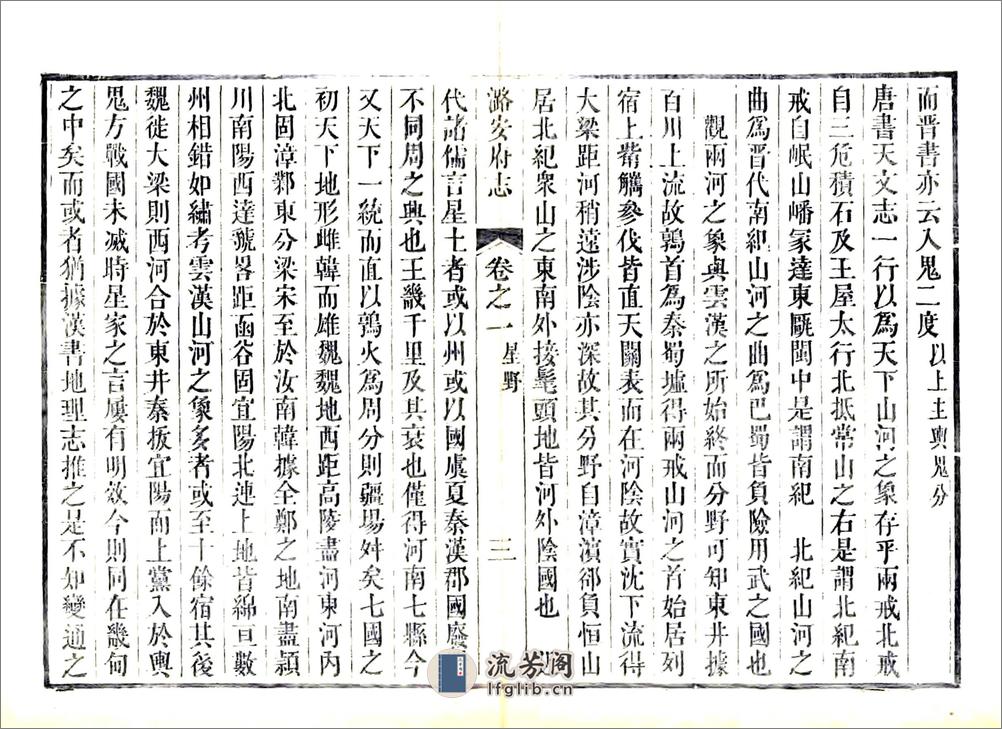 而晉書亦云入鬼二度以上主輿鬼分
唐書天文志一行以爲天下山河之象存乎兩戒北戒
自三危積石及王屋太行北抵常山之右是謂北紀南
戒自岷山嶓冢達東甌閩中是謂南紀　北紀山河之
曲爲晉代南紀山河之曲爲巴蜀皆負險用武之國也
觀兩河之象與雲漢之所始終而分野可知東井據
百川上流故鶉首爲秦蜀墟得兩戒山河之首始居列
宿上觜觿參伐皆直天關表而在河陰故實沈下流得
大梁距河稍遠涉陰亦深故其分野自漳濱卻負恒山
居北紀衆山之東南外接髦頭地皆河外陰國也
潞安府志　卷之一　星野　三
代諸儒言星土者或以州或以國虞夏秦漢郡國廢
不同周之興也王畿千里及其衰也僅得河南七縣今
又天下一統而直以鶉火爲周分則疆場舛矣七國之
初天下地形雌韓而雄魏魏地西距高陵盡河東河內
北固漳鄴東分梁宋至於汝南韓據全鄭之地南盡潁
川南陽西達虢畧距函谷固宜陽北連上地皆綿亘數
州相錯如繡考雲漢山河之象多者或至十餘宿其後
魏徙大梁則西河合於東井秦拔宜陽而上黨入於輿
鬼方戰國未滅時星家之言屢有明效今則同在畿甸
之中矣而或者猶據漢書地理志推之是不知變通之
流芳阁
lfglib.cn